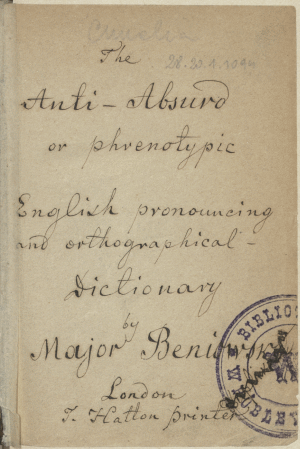 The
28-20.1.1094
Anti-Absurd
or phrenotypic
English pronouncing
and orthographical-
Dictionary
by
Major Beniowski
London
T. Hatton printer
BIBLIO